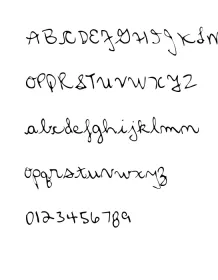 ABCDEFGHIJKLM
OPQRSTUVWXYZ
abcdefghijklmn
opqrstuvwxyz
0123456789